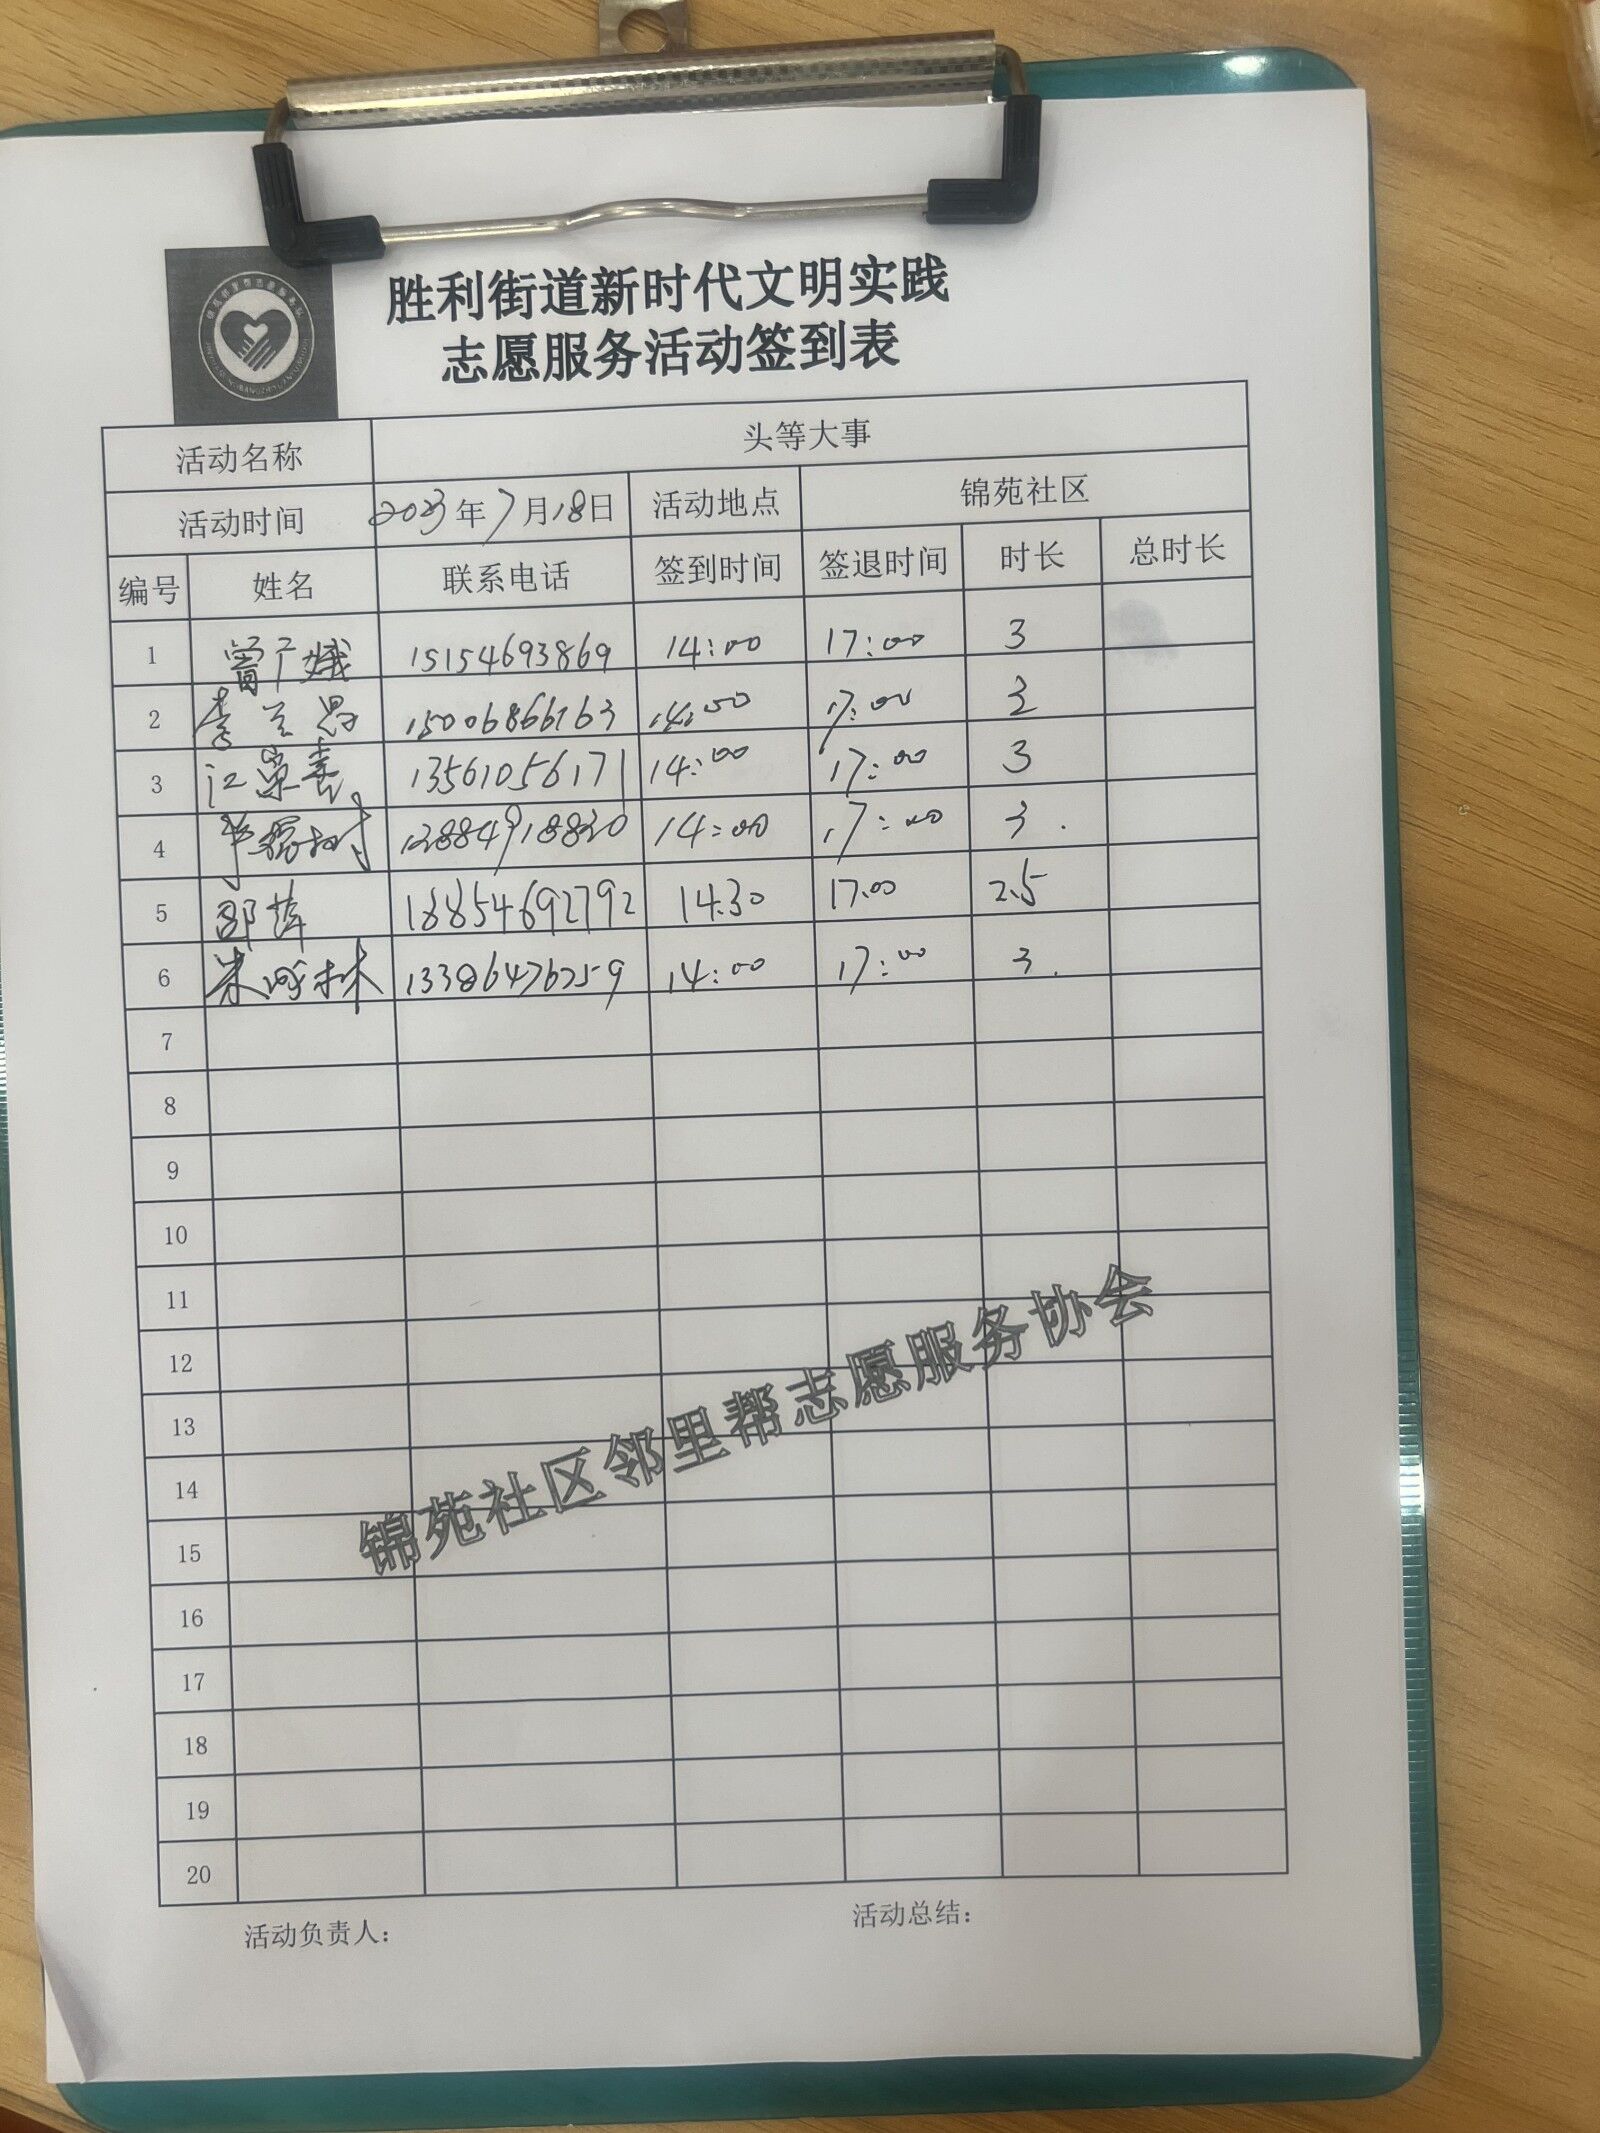 胜利街道新时代文明实践
志愿服务活动签到表
活动名称 头等大事
活动时间 2023年7月18日 活动地点 锦苑社区
编号 姓名 联系电话 签到时间 签退时间 时长 总时长
1 曾广娥 15154693869 14:00 17:00 3
2 李兰 15006866763 14:00 17:00 3
3 江荣喜 13561056171 14:00 17:00 3
4 13884918830 14:00 17:00 3.
5 邵萍 18854692792 14.30 17.00 2.5
6 林 13386476259 14:00 17:00 3.
7
8
9
10
11
12
13
14
15
16
17
18
19
20
锦苑社区邻里帮志愿服务协会
活动负责人： 活动总结：